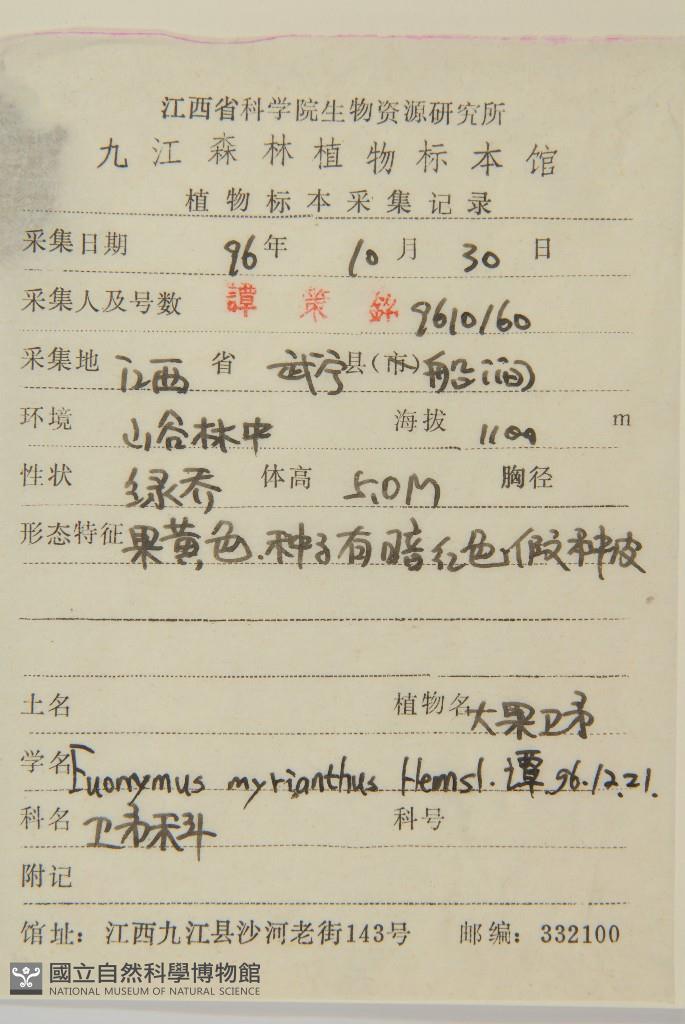 江西省科学院生物资源研究所
九江森林植物标本馆
植物标本采集记录
采集日期 96年 10月 30日
采集人及号数 譚策銘 9610160
采集地 江西省 武宁县(市) 船洞
环境 山谷林中 海拔 1100 m
性状 绿乔 体高 5.0M 胸径
形态特征 果黄色.种子有暗红色假种皮
土名 植物名 大果卫矛
学名 Euonymus myrianthus Hemsl. 谭.96.12.21.
科名 卫矛科 科号
附记
馆址：江西九江县沙河老街143号 邮编：332100
國立自然科學博物館
NATIONAL MUSEUM OF NATURAL SCIENCE